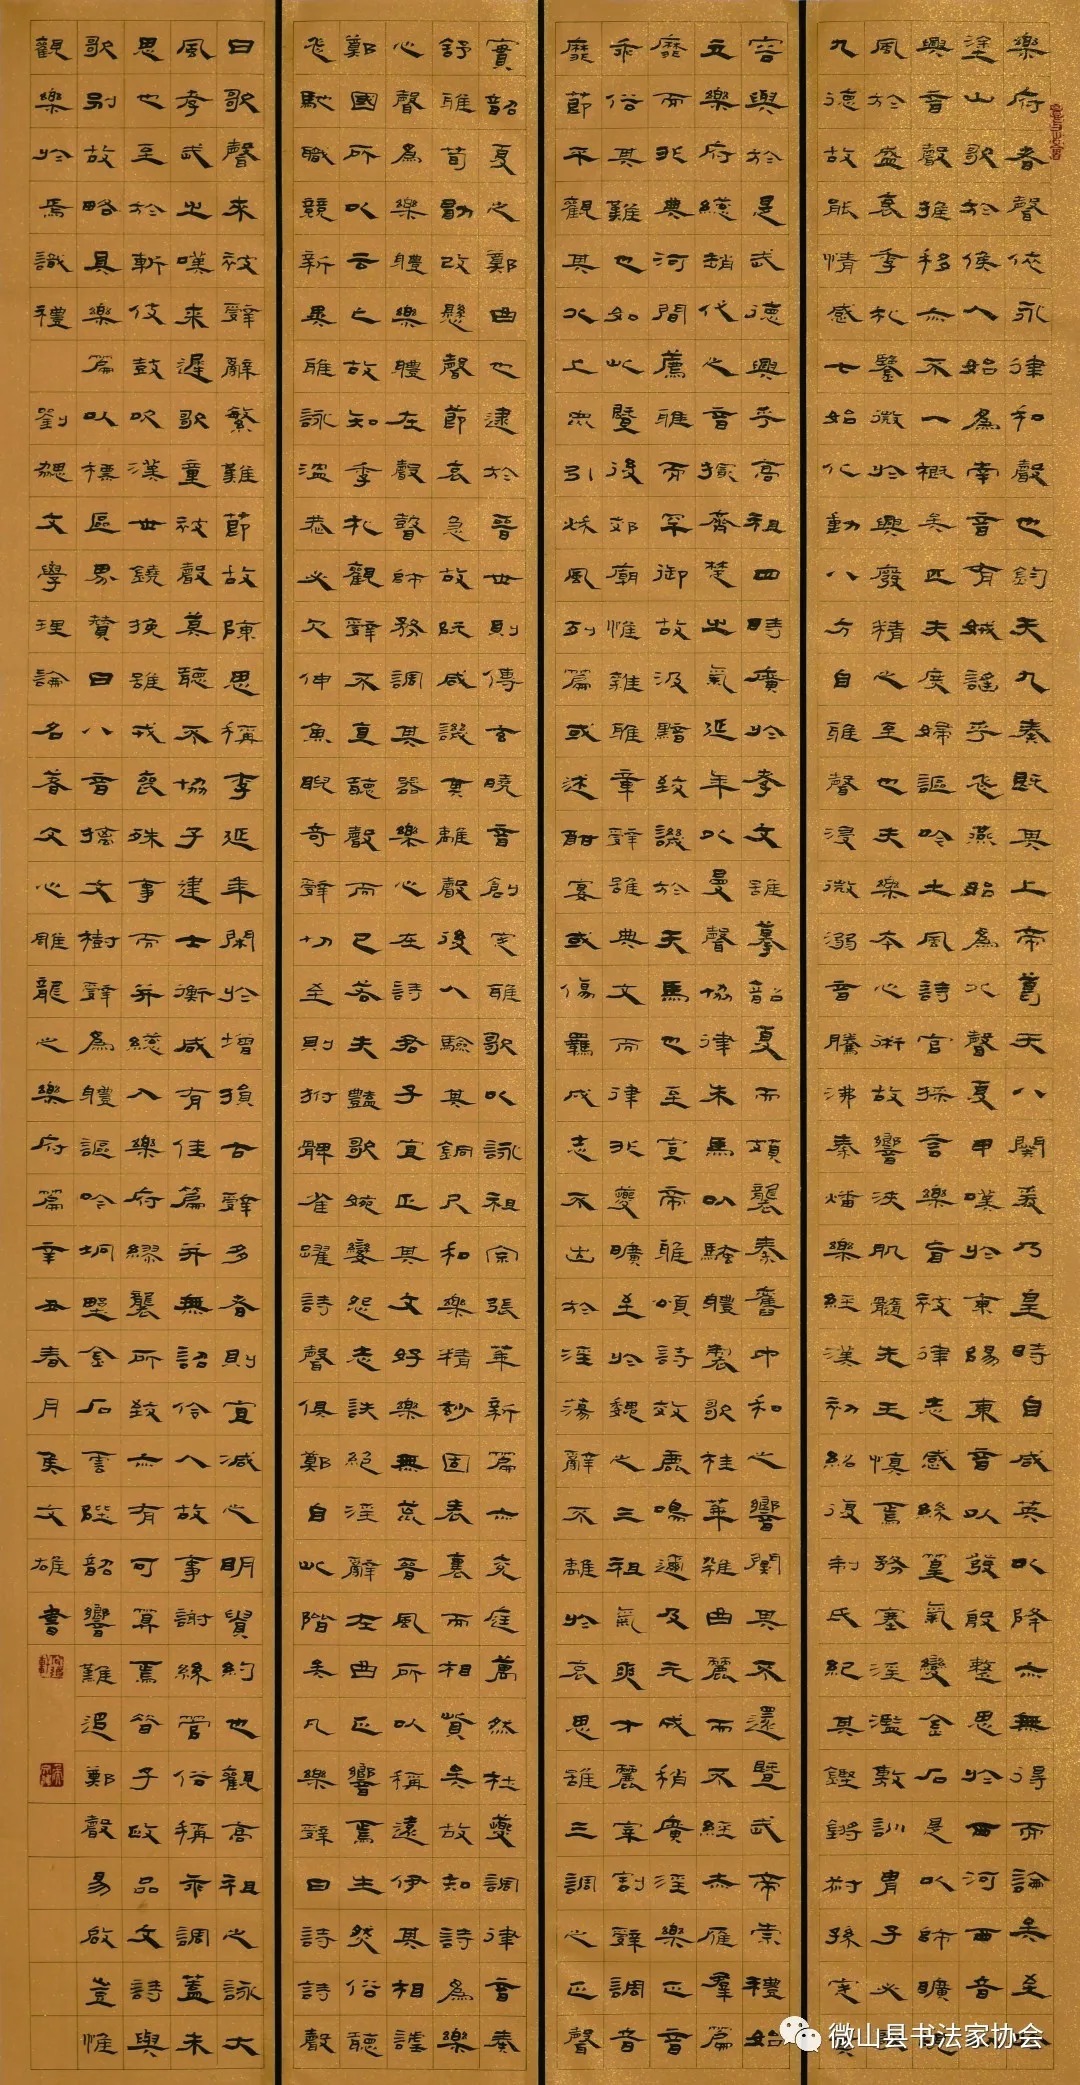 樂府者聲依永律和聲也鈞天九奏既其上帝葛天八闋爰乃皇時自咸英以降亦無得而論矣至
塗山歌於候人始為南音有娀謠乎飛燕始為北聲夏甲嘆於東陽東音以發殷整思於西河西音
興音聲推移亦不一概矣匹夫庶婦謳吟土風詩官採言樂盲被律志感絲篁氣變金石是以師曠
風於盛衰季札鑒微於興廢精之至也夫樂本心術故響浹肌髓先王慎焉務塞淫濫敷訓胄子必
九德故能情感七始化動八方自雅聲浸微溺音騰沸秦燔樂經漢初紹復制氏紀其鏗鏘叔孫定
容與於是武德興乎高祖四時廣於孝文雖摹韶夏而頗襲秦舊中和之響闃其不還暨武帝崇禮始
立樂府總趙代之音撮齊楚之氣延年以曼聲協律朱馬以騷體製歌桂華雜曲麗而不經赤雁羣篇
靡而非典河間薦雅而罕御故汲黯致譏於天馬也至宣帝雅頌詩效鹿鳴邇及元成稍廣淫樂正音
乖俗其難也如此暨後郊廟惟雜雅章辭雖典文而律非夔曠至於魏之三祖氣爽才麗宰割辭調音
靡節平觀其北上眾引秋風列篇或述酣宴或傷羈戍志不出於淫蕩辭不離於哀思雖三調之正聲
實韶夏之鄭曲也逮於晉世則傅玄曉音創定雅歌以詠祖宗張華新篇亦充庭萬然杜夔調律音奏
舒雅荀勖改懸聲節哀急故阮咸譏其離聲後人驗其銅尺和樂精妙固表裏而相資矣故知詩為樂
心聲為樂體樂體在聲瞽師務調其器樂心在詩君子宜正其文好樂無荒晉風所以稱遠伊其相謔
鄭國所以云亡故知季札觀辭不直聽聲而已若夫豔歌婉孌怨志訣絕淫辭在曲正響焉生然俗聽
飛馳職競新異雅詠溫恭必欠伸魚睨奇辭切至則拊髀雀躍詩聲俱鄭自此階矣凡樂辭曰詩詩聲
曰歌聲來被辭辭繁難節故陳思稱李延年閑於增損古辭多者則宜減之明貴約也觀高祖之詠大
風孝武之嘆來遲歌童被聲莫聽不協子建士衡咸有佳篇并無詔伶人故事謝絲管俗稱乖調蓋未
思也至於斬伎鼓吹漢世鐃挽雖戎喪殊事而并總入樂府繆襲所致亦有可算焉昔子政品文詩與
歌別故略具樂篇以標區界贊曰八音摛文樹辭為體謳吟坰野金石雲陛韶響難追鄭聲易啟豈惟
觀樂於焉識禮 劉勰文學理論名著文心雕龍之樂府篇辛丑春月文雄書
微山县书法家协会